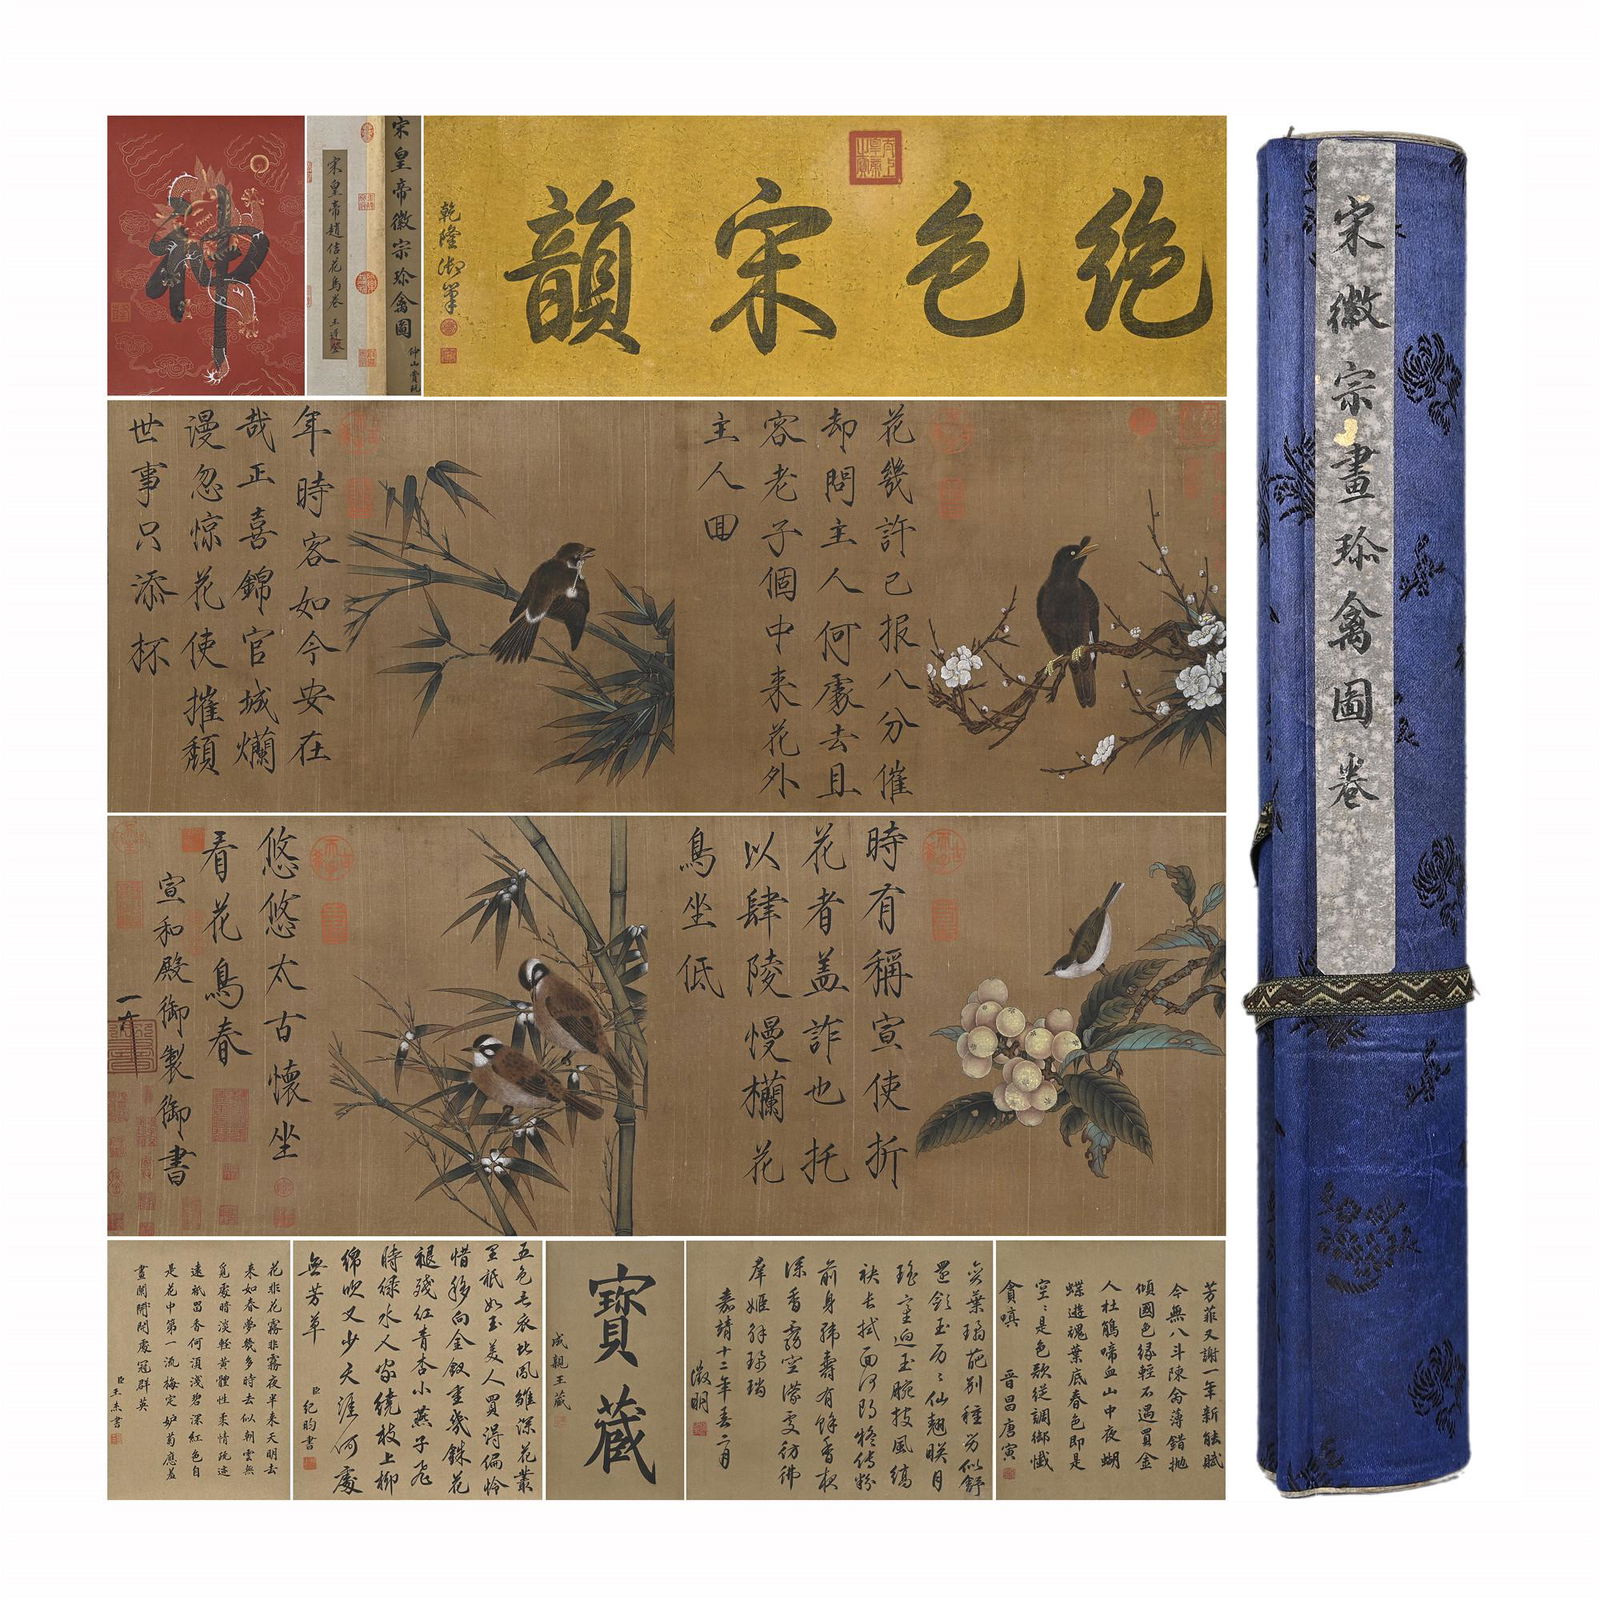 神
宋皇帝徽宗珎禽圖
仲山賞玩
宋皇帝趙佶花鳥卷
绝色宋韻
乾隆御筆
花幾許已报八分催
却問主人何處去且
容老子個中来花外
主人回
年時客如今安在
哉正喜錦官城爛
漫忽惊花使摧頹
世事只添杯
時有稱宣使折
花者盖詐也托
以肆陵慢欄花
鳥坐低
悠悠太古懷坐
看花鳥春
宣和殿御製御書
芳菲又謝一年新能賦
今無八斗陳禽薄錯抛
傾國色缘輕不遇買金
人杜鵑啼血山中夜蝴
蝶遊魂葉底春色即是
空空是色歌從調御懺
貪嗔
晉昌唐寅
前身韩壽有餘香根
深香霧空濛変彷彿
嘉靖十二年春二月
徵明
寶藏
成親王藏
五色毛衣比鳳雛深花叢
里祇如玉美人買得偏怜
惜移向金釵重幾銖花
褪殘红青杏小燕子飛
時绿水人家繞枝上柳
绵吹又少天涯何處
無芳草
臣紀昀書
花非花霧非霧夜半来天明去
来如春夢幾多時去似朝雲無
覓處時淡輕黄體性柔情疏迹
遠祇留香何須淺碧深红色自
是花中第一流梅定妒菊應羞
畫闌開處冠群英
臣王杰書
宋徽宗畫珎禽圖卷